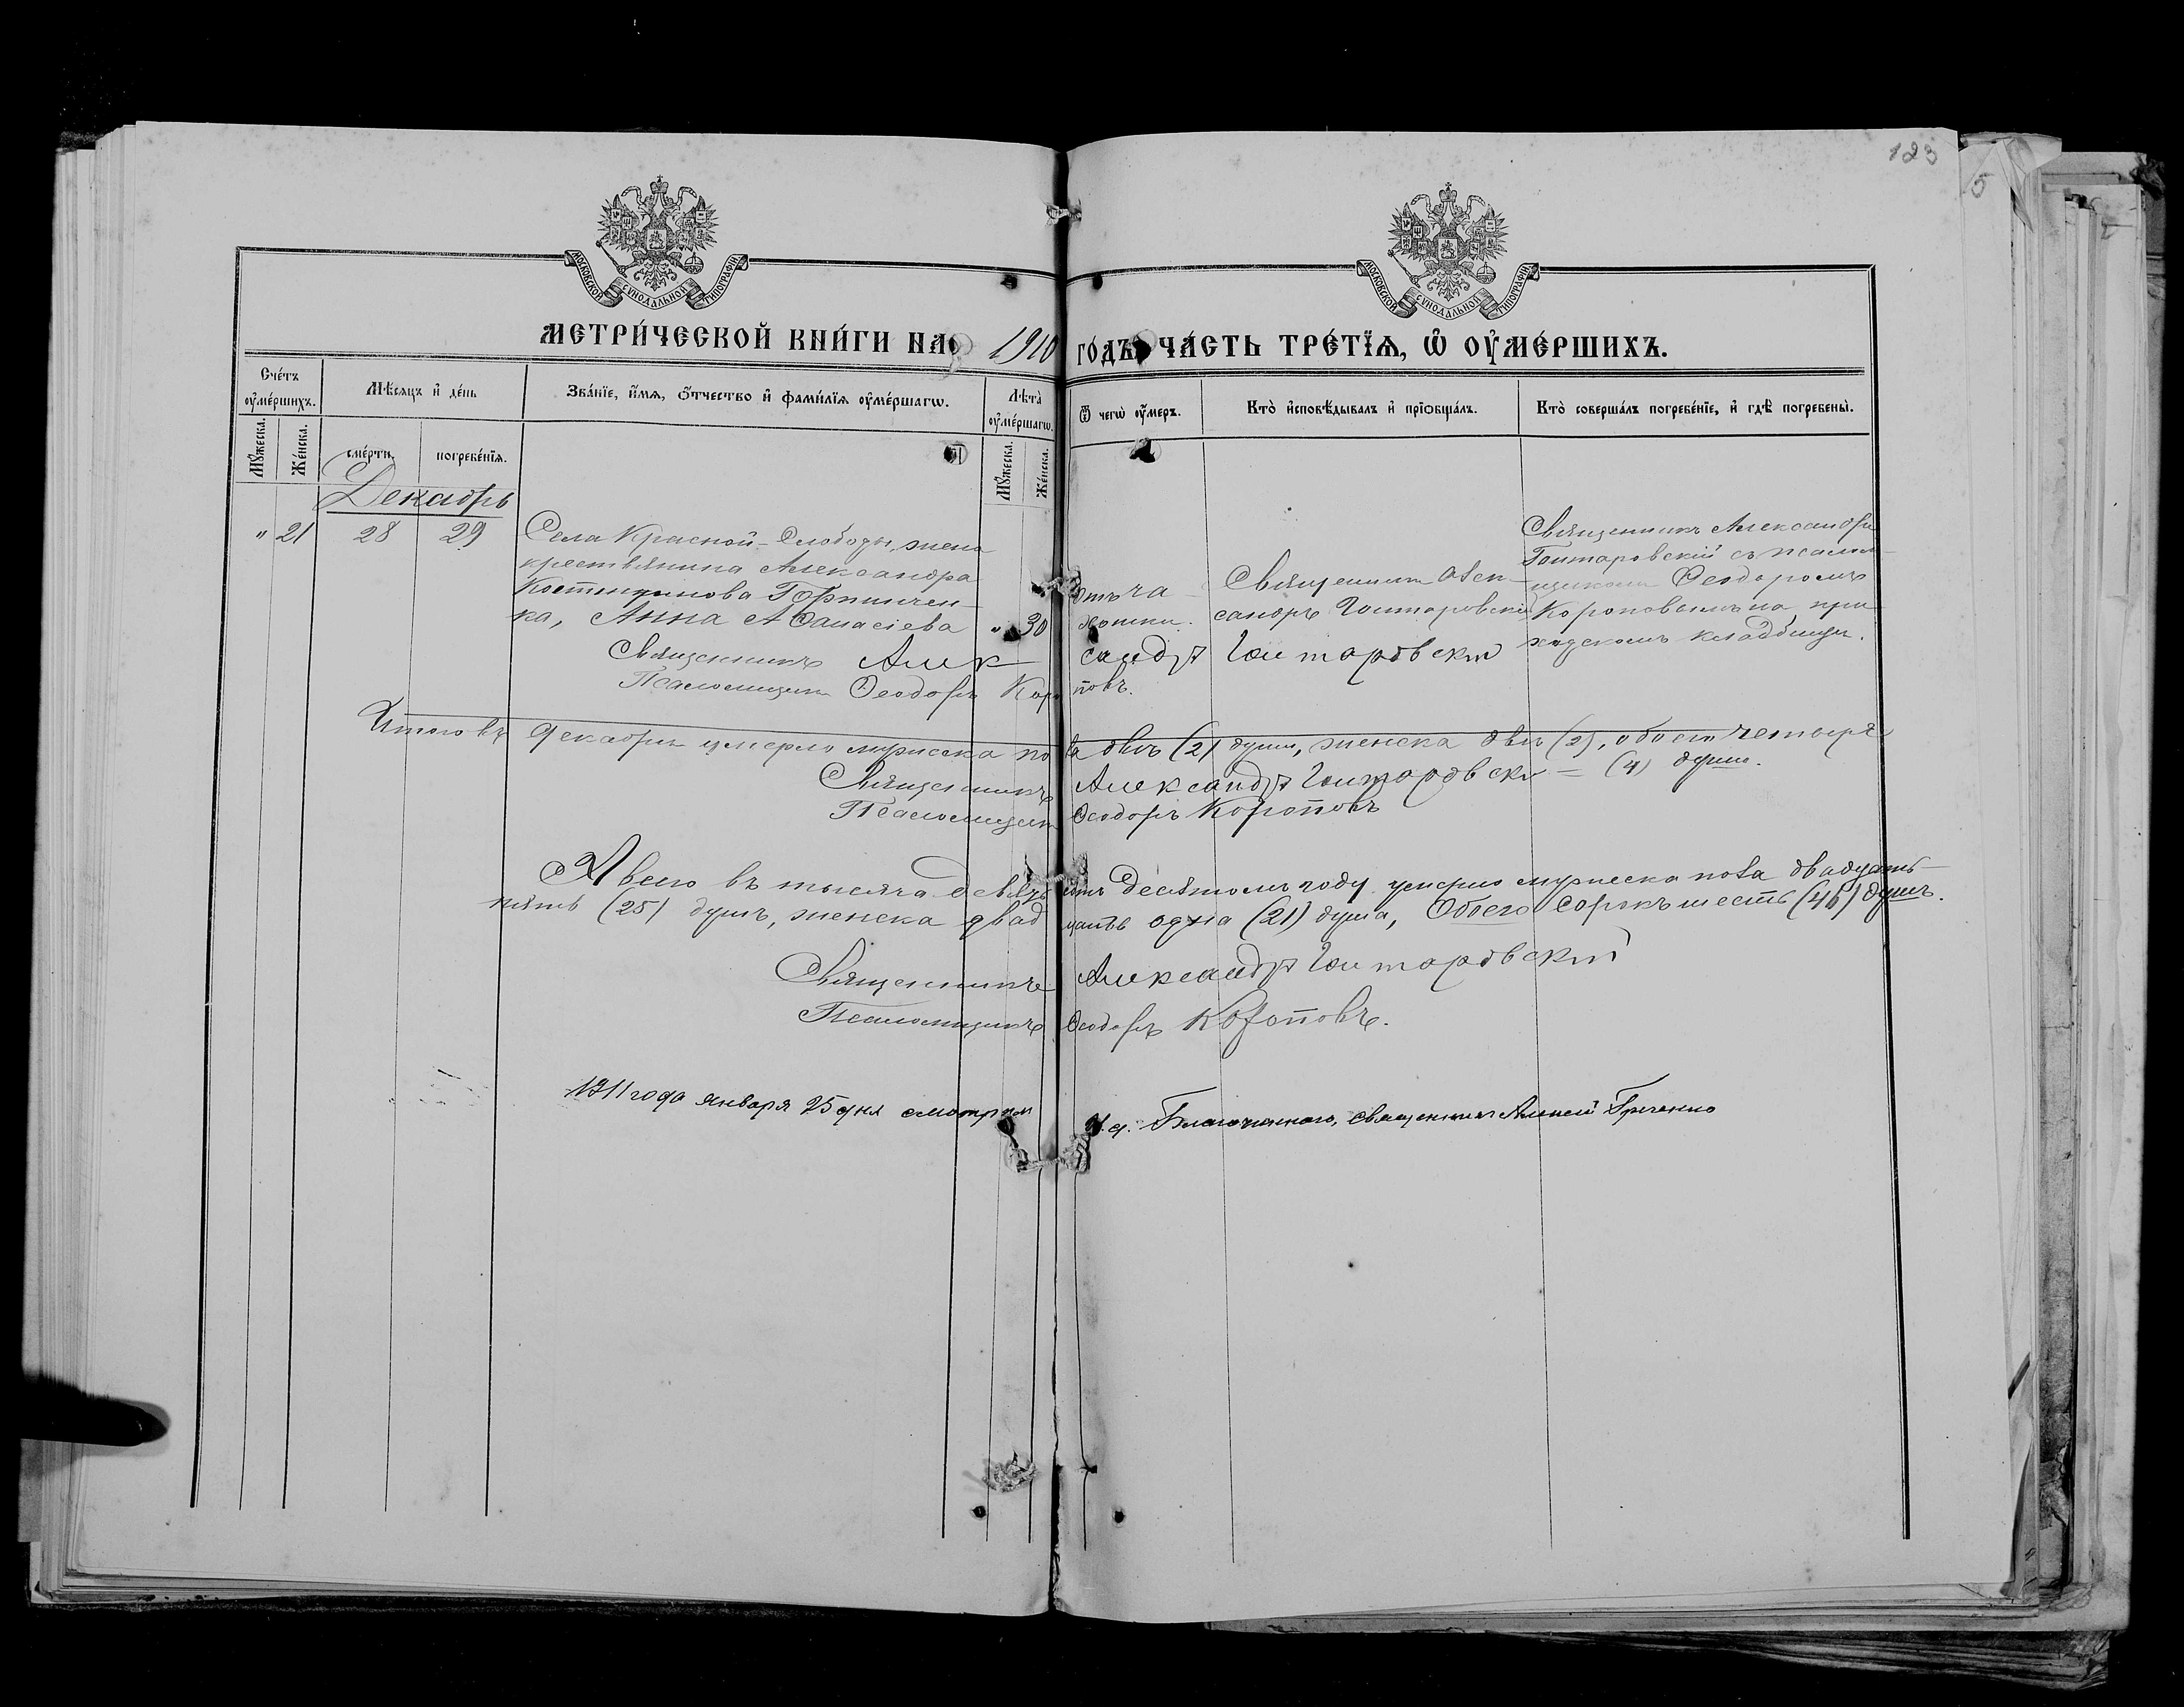 123
5
МОСКОВСКОЙ СѴНОДАЛЬНОЙ ТИПОГРАФІИ
МОСКОВСКОЙ СѴНОДАЛЬНОЙ ТИПОГРАФІИ
МЕТРИ́ЧЕСКОЙ КНИ́ГИ НА 1910 ГО́ДЪ ЧА́СТЬ ТРЕ́ТЇѦ, Ѡ҆ ОУ҆МЕ́РШИХЪ.
Сче́тъ оу҆ме́ршихъ.
Мꙋ́жеска.
Же́нска.
Мѣ́сѧцъ и҆ де́нь
сме́рти.
погребе́нїѧ.
Зва́нїе, и҆́мѧ, ѻ҆́тчество и҆ фами́лїѧ оу҆ме́ршагѡ.
Лѣ́та оу҆ме́ршагѡ.
Мꙋ́жеска.
Же́нска.
Ѿ чегѡ̀ оу҆́меръ.
Кто̀ и҆сповѣ́дывалъ и҆ прїѡбща́лъ.
Кто̀ соверша́лъ погребе́нїе, и҆ гдѣ̀ погребены̀.
Декабрь
" 21 28 29
Села Красной-Слободы, жена
крестьянина Александра
Костинтинова Горпинчен-
ка, Анна Аѳанасіева " 30
отъ ча-
хотки.
Священникъ Алек-
сандръ Гонтаровскій
Священникъ Александръ
Гонтаровскій съ псалом-
щикомъ Ѳеодоромъ
Короповымъ на при-
ходскомъ кладбищѣ.
Священникъ Александръ Гонтаровскій
Псаломщикъ Ѳеодоръ Короповъ.
Итого въ Декабрѣ умерло мужеска пола двѣ (2) души, женска двѣ (2), обоего четыре
(4) души.
Священникъ Александръ Гонтаровскій
Псаломщикъ Ѳеодоръ Короповъ
А всего въ тысяча девятьсотъ десятомъ году умерло мужеска пола двадцать
пять (25) душъ, женска двадцать одна (21) душа, Обоего сорокъ шесть (46) душъ.
Священникъ Александръ Гонтаровскій
Псаломщикъ Ѳеодоръ Короповъ.
1911 года января 25 дня смотрѣлъ И. д. Благочиннаго, священникъ Алексій Греченко